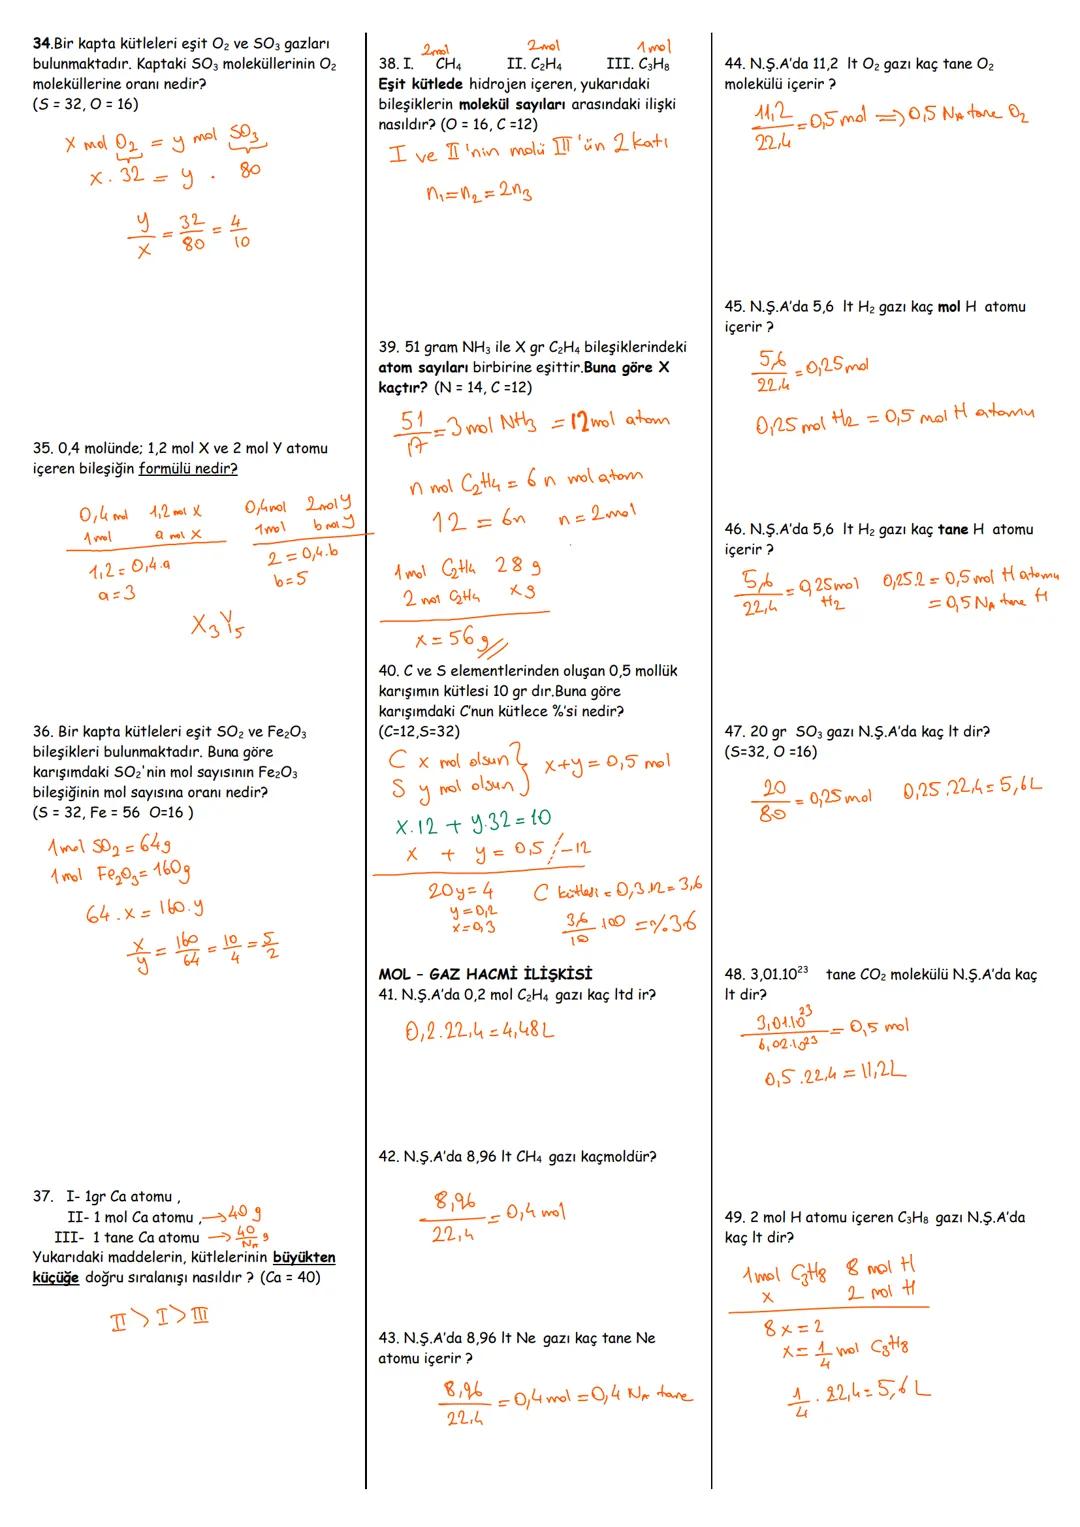 34.Bir kapta kütleleri eşit O₂ ve SO₃ gazları
bulunmaktadır. Kaptaki SO₃ moleküllerinin O₂
moleküllerine oranı nedir?
(S = 32, O = 16)
x mol O₂ = y mol SO₃
x . 32 = y . 80
y/x = 32/80 = 4/10
35. 0,4 molünde; 1,2 mol X ve 2 mol Y atomu
içeren bileşiğin formülü nedir?
0,4 mol 1,2 mol X
1 mol a mol X
1,2 = 0,4.a
a=3
0,4mol 2mol y
1mol b mol y
2 = 0,4.b
b=5
X₃Y₅
36. Bir kapta kütleleri eşit SO₂ ve Fe₂O₃
bileşikleri bulunmaktadır. Buna göre
karışımdaki SO₂'nin mol sayısının Fe₂O₃
bileşiğinin mol sayısına oranı nedir?
(S = 32, Fe = 56 O=16 )
1mol SO₂ = 64g
1mol Fe₂O₃ = 160g
64.x = 160.y
x/y = 160/64 = 10/4 = 5/2
37. I- 1gr Ca atomu ,
II- 1 mol Ca atomu , → 40 g
III- 1 tane Ca atomu → 40/Nₐ g
Yukarıdaki maddelerin, kütlelerinin büyükten
küçüğe doğru sıralanışı nasıldır ? (Ca = 40)
II > I > III
2mol 2mol 1mol
38. I. CH₄ II. C₂H₄ III. C₃H₈
Eşit kütlede hidrojen içeren, yukarıdaki
bileşiklerin molekül sayıları arasındaki ilişki
nasıldır? (O = 16, C =12)
I ve II'nin molü III'ün 2 katı
n₁=n₂=2n₃
39. 51 gram NH₃ ile X gr C₂H₄ bileşiklerindeki
atom sayıları birbirine eşittir.Buna göre X
kaçtır? (N = 14, C =12)
51/17 = 3 mol NH₃ = 12mol atom
n mol C₂H₄ = 6n mol atom
12 = 6n n = 2mol
1mol C₂H₄ 28 g
2 mol C₂H₄ x g
x = 56 g//
40. C ve S elementlerinden oluşan 0,5 mollük
karışımın kütlesi 10 gr dır.Buna göre
karışımdaki C'nun kütlece %'si nedir?
(C=12,S=32)
C x mol olsun
S y mol olsun } x+y = 0,5 mol
x.12 + y.32 = 10
x + y = 0,5 /-12
20y = 4
y=0,2
x=0,3
C kütlesi = 0,3.12 = 3,6
3,6/10 . 100 = %36
MOL - GAZ HACMİ İLİŞKİSİ
41. N.Ş.A'da 0,2 mol C₂H₄ gazı kaç ltd ir?
0,2.22,4 = 4,48L
42. N.Ş.A'da 8,96 lt CH₄ gazı kaçmoldür?
8,96/22,4 = 0,4 mol
43. N.Ş.A'da 8,96 lt Ne gazı kaç tane Ne
atomu içerir ?
8,96/22,4 = 0,4mol = 0,4 Nₐ tane
44. N.Ş.A'da 11,2 lt O₂ gazı kaç tane O₂
molekülü içerir ?
11,2/22,4 = 0,5 mol ⇒ 0,5 Nₐ tane O₂
45. N.Ş.A'da 5,6 lt H₂ gazı kaç mol H atomu
içerir ?
5,6/22,4 = 0,25mol
0,25 mol H₂ = 0,5 mol H atomu
46. N.Ş.A'da 5,6 lt H₂ gazı kaç tane H atomu
içerir ?
5,6/22,4 = 0,25mol H₂ 0,25.2 = 0,5 mol H atomu
= 0,5 Nₐ tane H
47. 20 gr SO₃ gazı N.Ş.A'da kaç lt dir?
(S=32, O =16)
20/80 = 0,25 mol 0,25.22,4 = 5,6L
48. 3,01.10²³ tane CO₂ molekülü N.Ş.A'da kaç
lt dir?
3,01.10²³/6,02.10²³ = 0,5 mol
0,5.22,4 = 11,2L
49. 2 mol H atomu içeren C₃H₈ gazı N.Ş.A'da
kaç lt dir?
1mol C₃H₈ 8 mol H
x 2 mol H
8x = 2
x = 1/4 mol C₃H₈
1/4 . 22,4 = 5,6 L